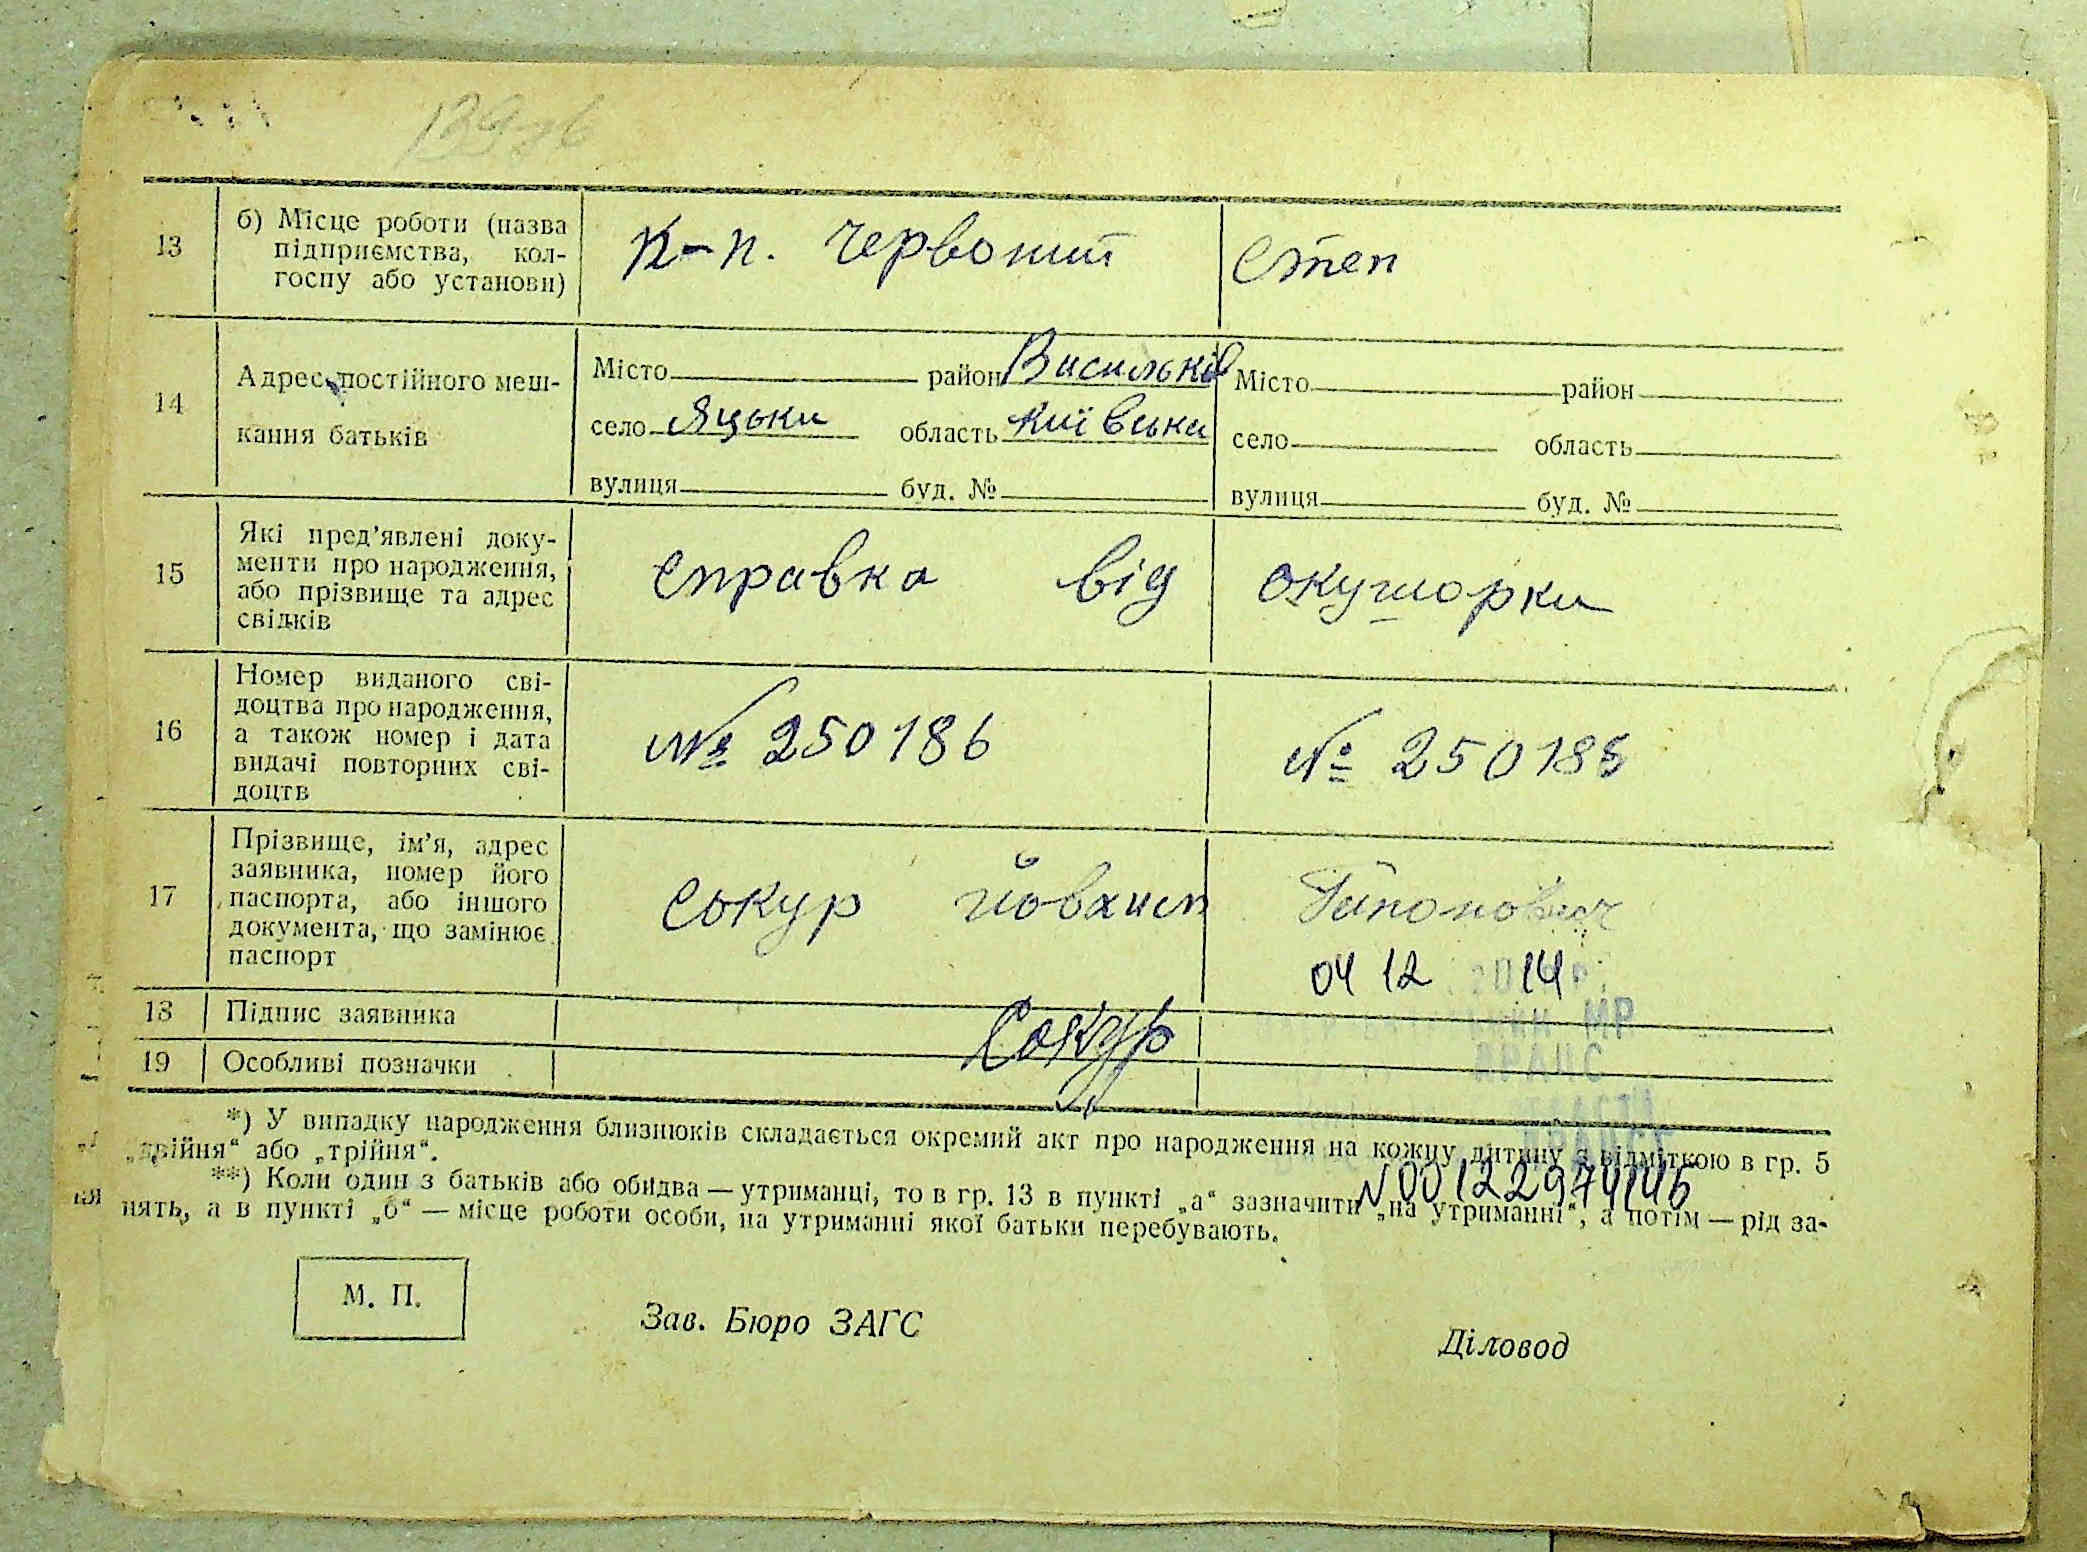 13
б) Місце роботи (назва
підприємства, кол-
госпу або установи)
к-п. Червоний Степ
14
Адрес постійного меш-
кання батьків
Місто район Васильків Місто район
село Яцьки область Київська село область
вулиця буд. № вулиця буд. №
15
Які пред’явлені доку-
менти про народження,
або прізвище та адрес
свідків
справка від окушорки
16
Номер виданого сві-
доцтва про народження,
а також номер і дата
видачі повторних сві-
доцтв
№ 250186 № 250186
17
Прізвище, ім’я, адрес
заявника, номер його
паспорта, або іншого
документа, що замінює
паспорт
Сокур Йовхим
04 12 14
МР
ДРАЦС
18 Підпис заявника
Сокур
19 Особливі позначки
*) У випадку народження близнюків складається окремий акт про народження на кожну дитину з відміткою в гр. 5
„двійня“ або „трійня“.
№00122974146
**) Коли один з батьків або обидва — утриманці, то в гр. 13 в пункті „а“ зазначити „на утриманні“, а потім — рід за-
нять, а в пункті „б“ — місце роботи особи, на утриманні якої батьки перебувають.
М. П.
Зав. Бюро ЗАГС
Діловод